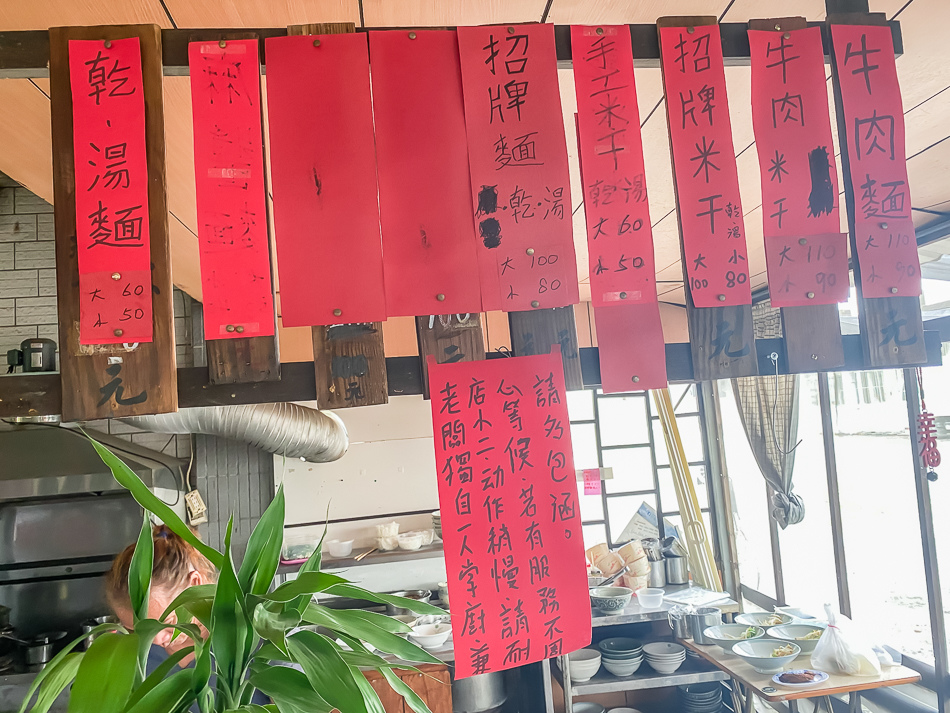 乾、湯麵
大 60
小 50
元
招牌麵
乾·湯
大 100
小 80
手工米干
乾湯
大 60
小 50
招牌米干
乾湯
大 小
100 80
元
牛肉米干
大 110
小 90
牛肉麵
大 110
小 90
元
老闆獨自一人掌廚兼
店小二动作稍慢、請耐
心等候、若有服務不周
請多包涵。
幸福